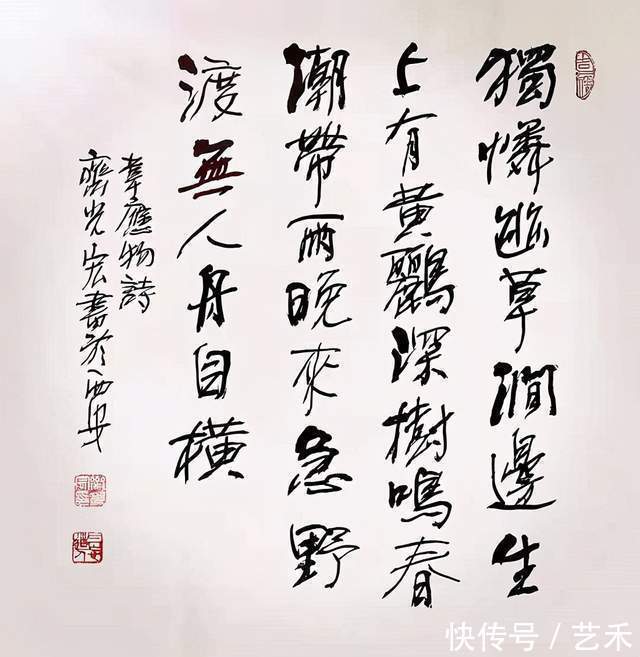 獨憐幽草澗邊生
上有黃鸝深樹鳴春
潮帶雨晚來急野
渡無人舟自橫
韋應物詩
齊光宏書於西安
快传号/艺禾